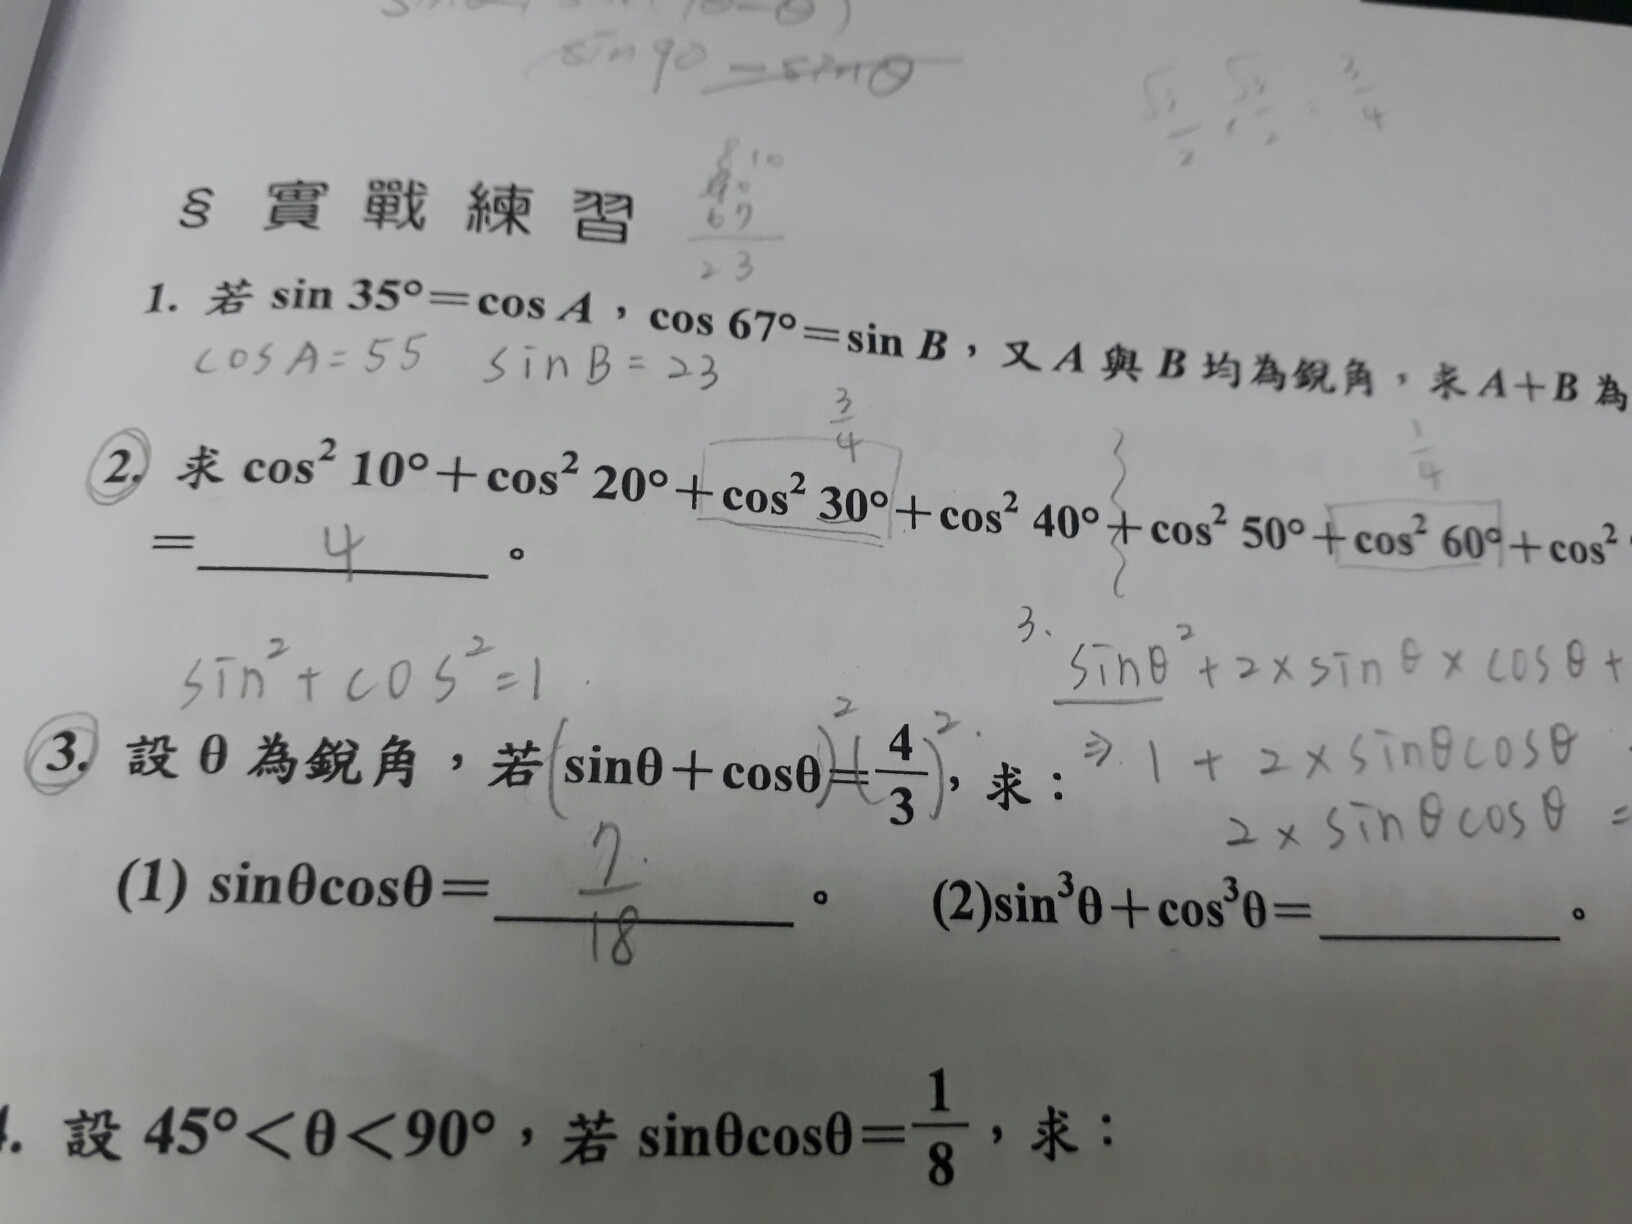 sin90 - sinθ
√3/2 · √3/2 · 3/4
§ 實戰練習
8 10
90
67
23
1. 若 sin 35°=cos A，cos 67°=sin B，又 A 與 B 均為銳角，求 A+B 為
cos A = 55 sin B = 23
3/4
1/4
2. 求 cos² 10°+cos² 20°+cos² 30°+cos² 40°+cos² 50°+cos² 60°+cos²
= 4 。
sin²+cos²=1
3. sinθ²+2×sinθ×cosθ+
⇒ 1+2×sinθcosθ
2×sinθcosθ =
3. 設 θ 為銳角，若(sinθ+cosθ)²=(4/3)²，求：
(1) sinθcosθ= 7/18 。 (2)sin³θ+cos³θ=______。
4. 設 45°<θ<90°，若 sinθcosθ=1/8，求：